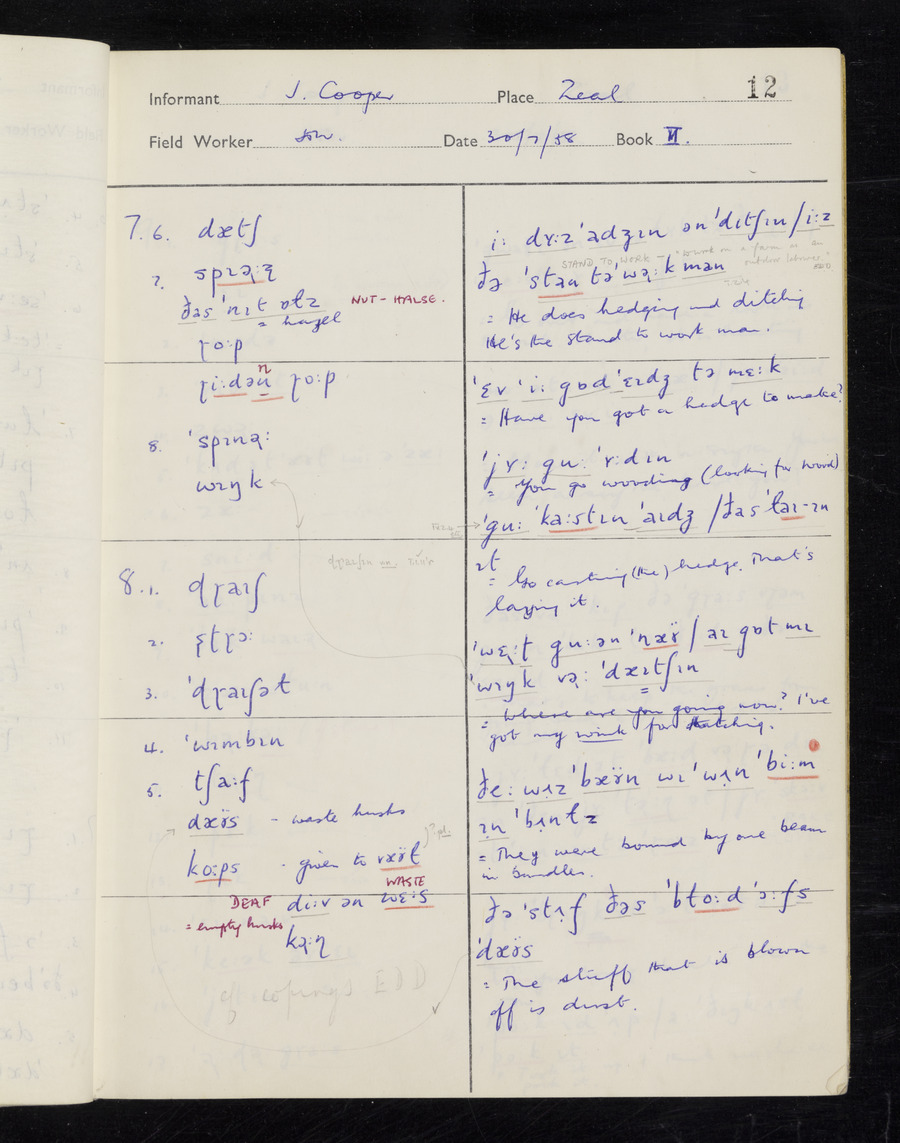 Informant J. Cooper Place Zeal 12
Field Worker Date 30/7/58 Book VI.
7.6. dætʃ
7. spɪəː
ðəs 'nɪt ɒtz NUT-HALSE.
= hazel
ɽoːp
ɽiːdən ɽoːp
n
8. 'spɪnəː
wɪŋk
8.1. dɽaɪʃ
2.
3. 'dɽaɪʃət
4. 'wɪmbɪn
5. tʃaːf
dæÿs - waste husks
koːps - given to væÿt
?pl.
WASTE
DEAF diːv ən wɛːs
= empty husks
cf copings EDD
iː dʏːz 'adʒɪn ən 'dɪtʃɪn / iːz
STAND TO WORK - to work on a farm as an outdoor labourer. EDD
ðə 'stan tə 'wəːk man
= He does hedging and ditching
He's the stand to work man.
'ɛv 'iː gɒd 'ɛɪdʒ tə mɛːk
= Have you got a hedge to make?
'jʏː guː 'ʏːdɪn
= You go wooding (looking for wood)
'guː 'kaːstɪn 'aɪdʒ / ðas 'laɪ-ɪn
ɪt
= Go casting (the) hedge. That's
laying it.
'wɛːt guːən 'næÿ / aɪ gɒt mɪ
'wɪŋk vəː 'dæɪtʃɪn
= Where are you going now? I've
got my wink for thatching.
ðeː wɪz 'bæÿn wɪ 'wʌn 'biːm
ɪn 'bʌntz
= They were bound by one beam
in bundles.
ðə 'stʌf ðəs 'bloːd 'ɔːfs
'dæÿs
= The stuff that is blown
off is dust.